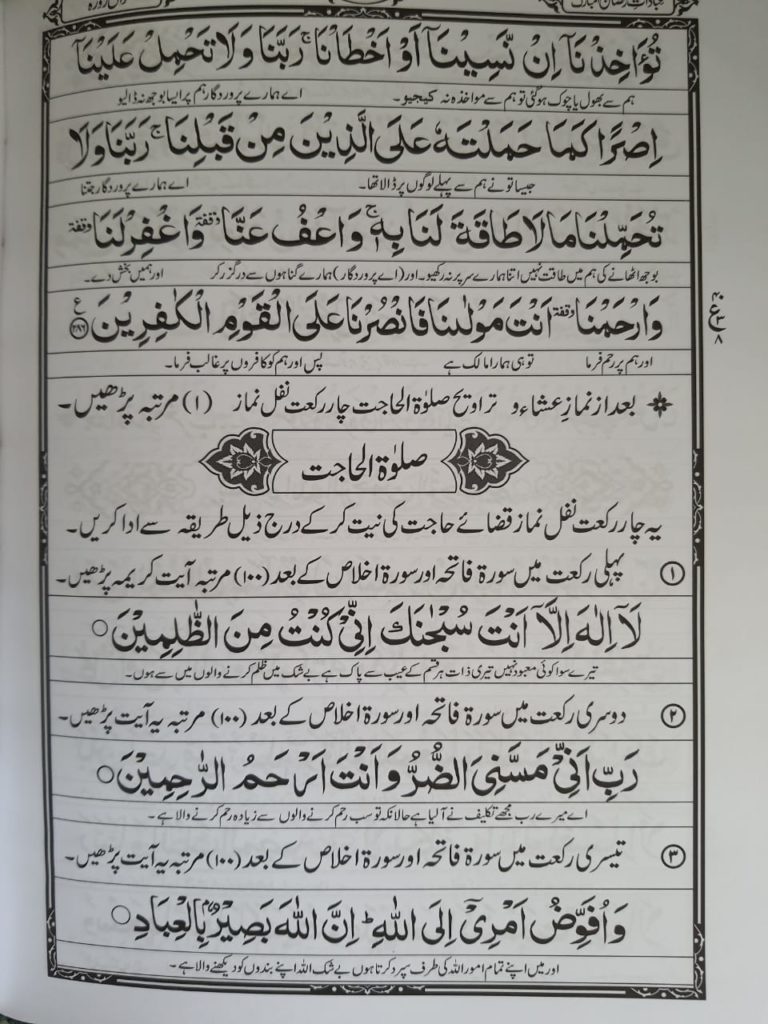 عبادات رمضان المبارک
تُؤَاخِذْنَآ اِنْ نَّسِيْنَآ اَوْ اَخْطَاْنَا ج رَبَّنَا وَلَا تَحْمِلْ عَلَيْنَآ
ہم سے بھول یا چوک ہوگئی تو ہم سے مواخذہ نہ کیجیو۔ اے ہمارے پروردگار ہم پر ایسا بوجھ نہ ڈالیو
اِصْرًا كَمَا حَمَلْتَهٗ عَلَى الَّذِيْنَ مِنْ قَبْلِنَا ج رَبَّنَا وَلَا
جیسا تو نے ہم سے پہلے لوگوں پر ڈالا تھا۔ اے ہمارے پروردگار جتنا
تُحَمِّلْنَا مَا لَا طَاقَةَ لَنَا بِهٖ ج وَاعْفُ عَنَّا وقفة وَاغْفِرْ لَنَا وقفة
بوجھ اٹھانے کی ہم میں طاقت نہیں اتنا ہمارے سر پر نہ رکھیو۔ اور (اے پروردگار) ہمارے گناہوں سے درگزر کر اور ہمیں بخش دے۔
وَارْحَمْنَا وقفة اَنْتَ مَوْلٰىنَا فَانْصُرْنَا عَلَى الْقَوْمِ الْكٰفِرِيْنَ ع ۲۸۶
اور ہم پر رحم فرما تو ہی ہمارا مالک ہے پس اور ہم کو کافروں پر غالب فرما۔
بعد از نمازِ عشاء و تراویح صلوٰۃ الحاجت چار رکعت نفل نماز (۱) مرتبہ پڑھیں۔
صلوٰۃ الحاجت
یہ چار رکعت نفل نماز قضائے حاجت کی نیت کر کے درج ذیل طریقہ سے ادا کریں۔
۱ پہلی رکعت میں سورۃ فاتحہ اور سورۃ اخلاص کے بعد (۱۰۰) مرتبہ آیت کریمہ پڑھیں۔
لَآ اِلٰهَ اِلَّآ اَنْتَ سُبْحٰنَكَ اِنِّيْ كُنْتُ مِنَ الظّٰلِمِيْنَ ○
تیرے سوا کوئی معبود نہیں تیری ذات ہر قسم کے عیب سے پاک ہے بے شک میں ظلم کرنے والوں میں سے ہوں۔
۲ دوسری رکعت میں سورۃ فاتحہ اور سورۃ اخلاص کے بعد (۱۰۰) مرتبہ یہ آیت پڑھیں۔
رَبِّ اَنِّيْ مَسَّنِيَ الضُّرُّ وَاَنْتَ اَرْحَمُ الرّٰحِمِيْنَ ○
اے میرے رب مجھے تکلیف نے آ لیا ہے حالانکہ تو سب رحم کرنے والوں سے زیادہ رحم کرنے والا ہے۔
۳ تیسری رکعت میں سورۃ فاتحہ اور سورۃ اخلاص کے بعد (۱۰۰) مرتبہ یہ آیت پڑھیں۔
وَاُفَوِّضُ اَمْرِيْٓ اِلَى اللّٰهِ ط اِنَّ اللّٰهَ بَصِيْرٌۢ بِالْعِبَادِ ○
اور میں اپنے تمام امور اللہ کی طرف سپرد کرتا ہوں بے شک اللہ اپنے بندوں کو دیکھنے والا ہے۔